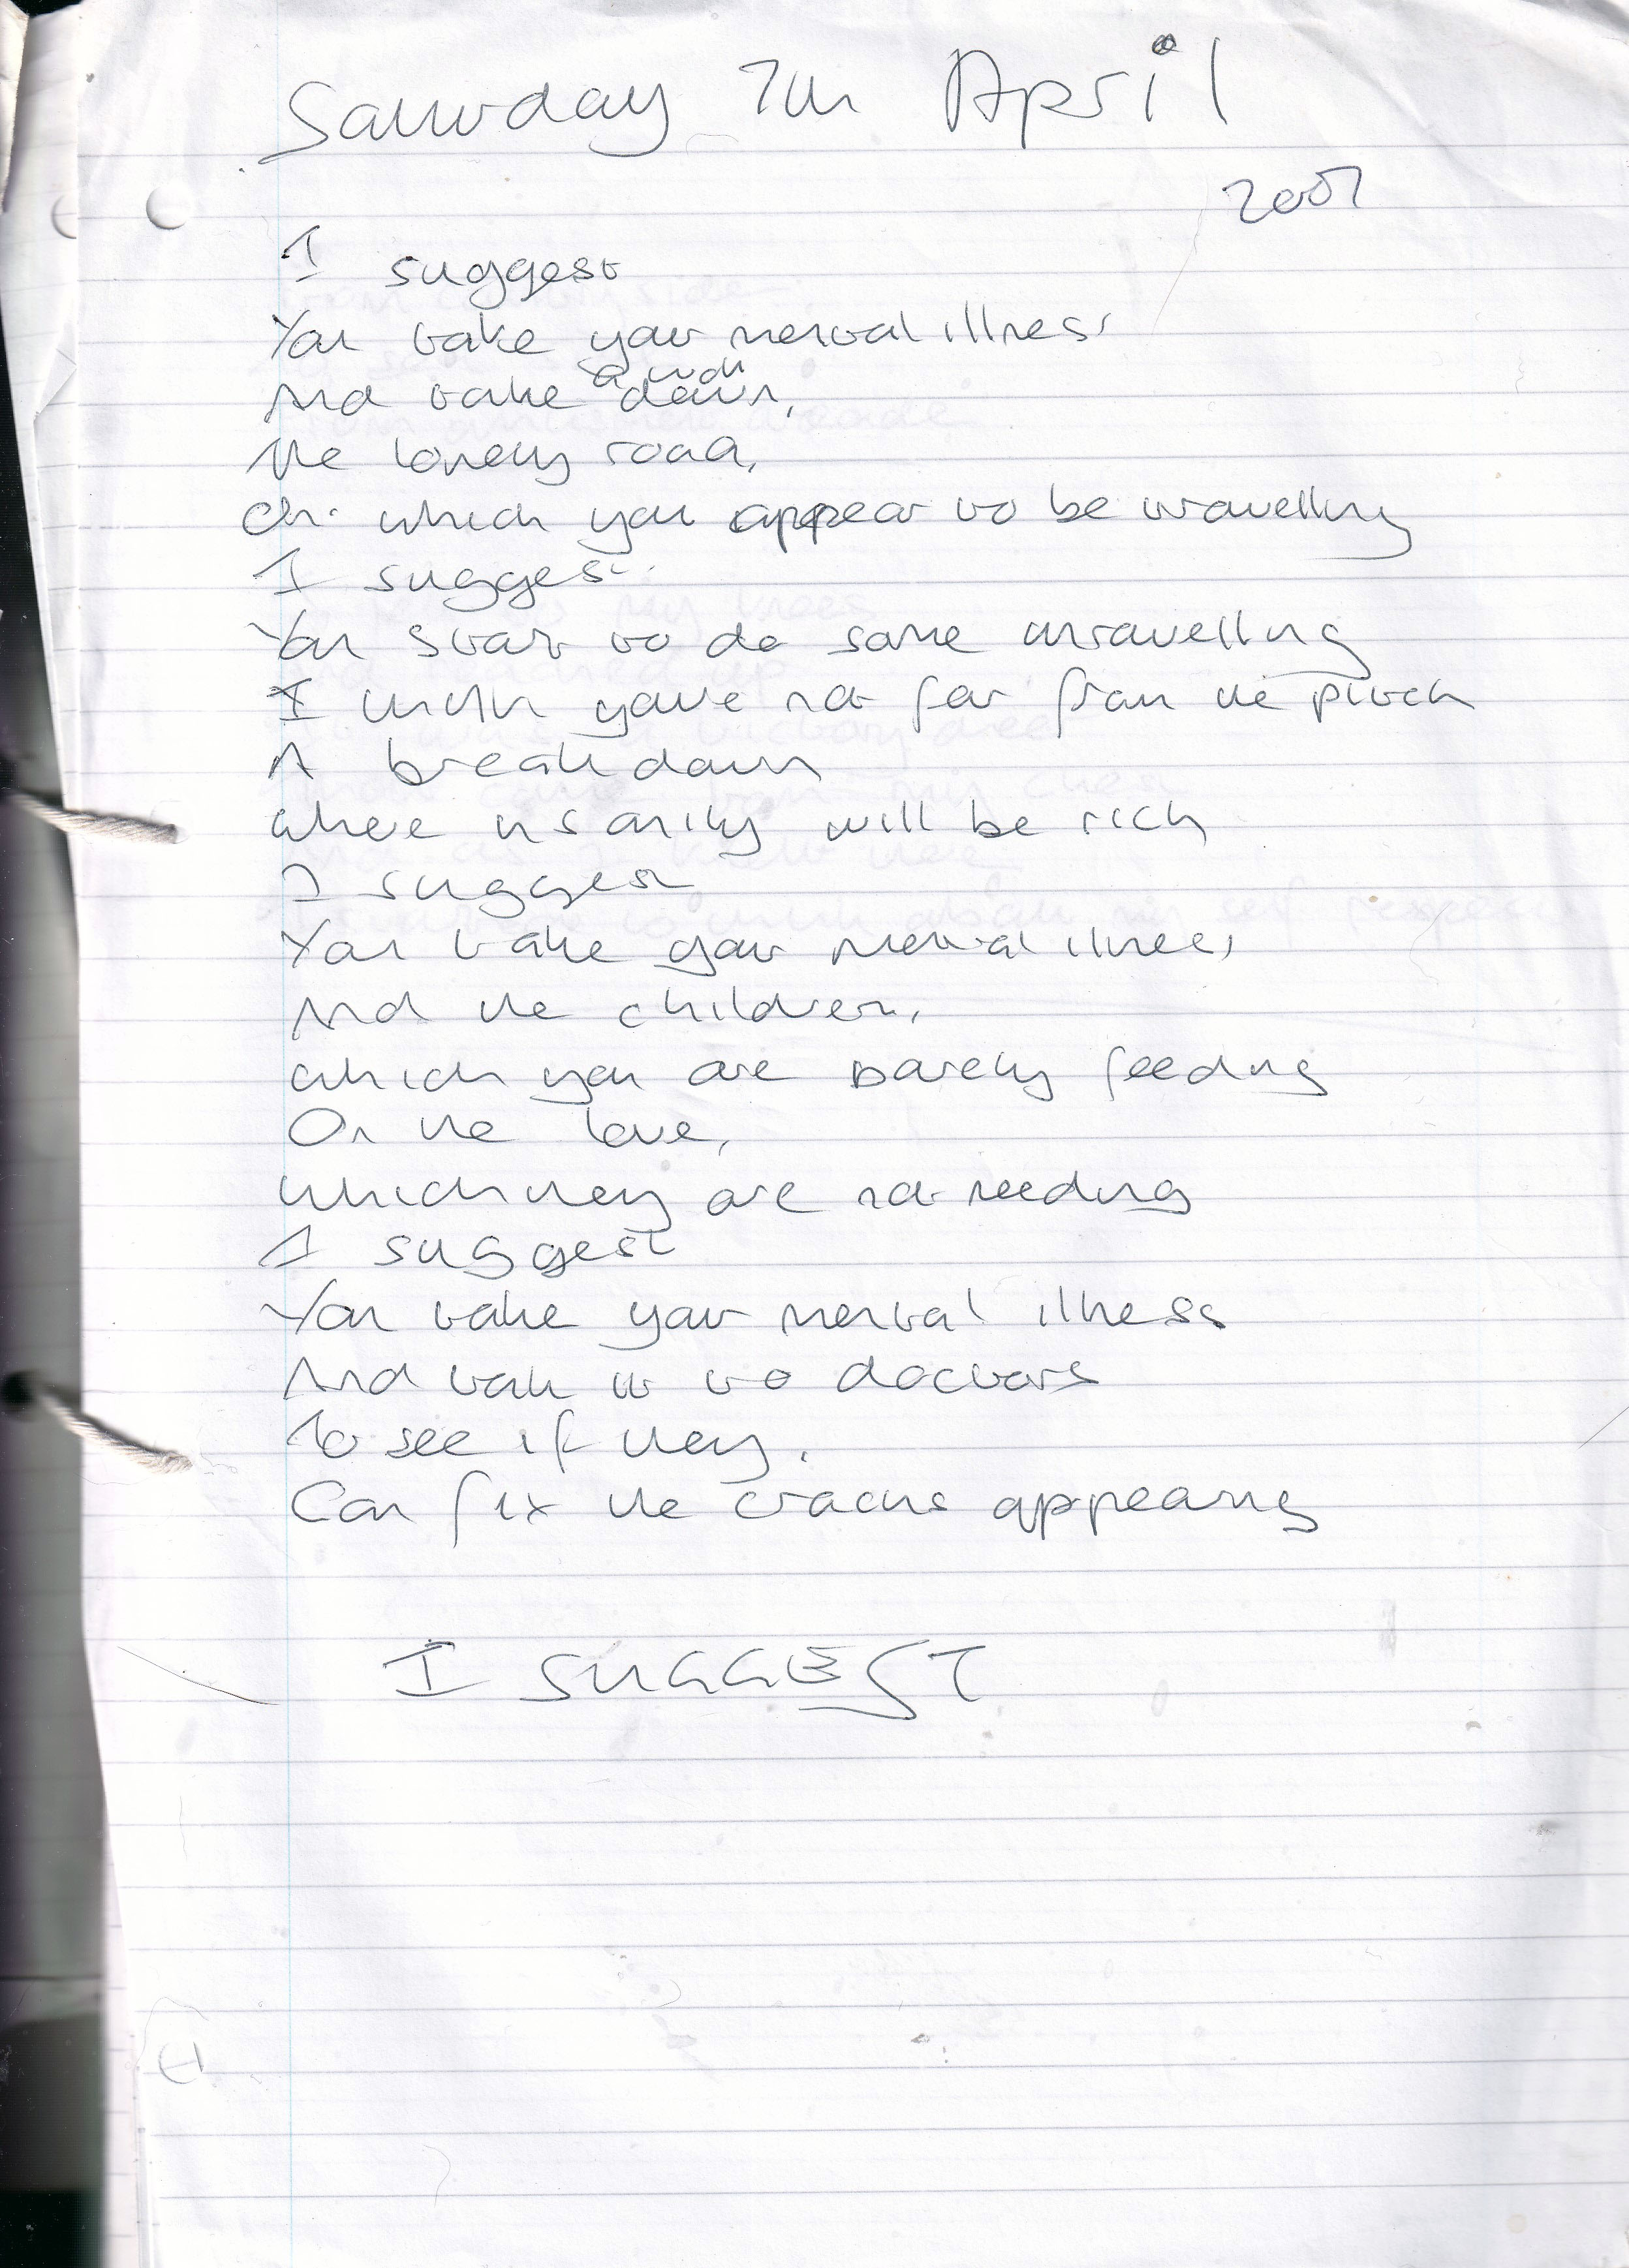 Saturday 7th April
2007
I suggest
You take your mental illness
And take a walk down,
The lonely road,
On which you appear to be travelling
I suggest
You start to do some unravelling
I think youre not far from the pitch
A breakdown
where insanity will be rich
I suggest
You take your mental illness
And the children,
which you are barely feeding
On the love,
which they are not needing
I suggest
You take your mental illness
And take it to doctors
To see if they.
Can fix the cracks appearing
I SUGGEST